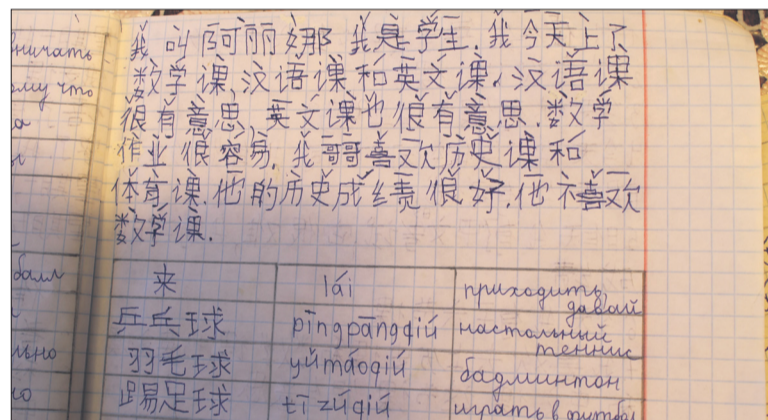 ничать
我叫阿丽娜 我是学生. 我今天上了
数学课, 汉语课和英文课. 汉语课
ому что
很有意思, 英文课也很有意思. 数学
作业很容易. 我哥哥喜欢历史课和
体育课. 他的历史成绩很好. 他不喜欢
数学课.
балл
来 lái приходить, давай
乒乓球 pīngpāngqiú настольный теннис
羽毛球 yǔmáoqiú бадминтон
踢足球 tī zúqiú играть в футбол